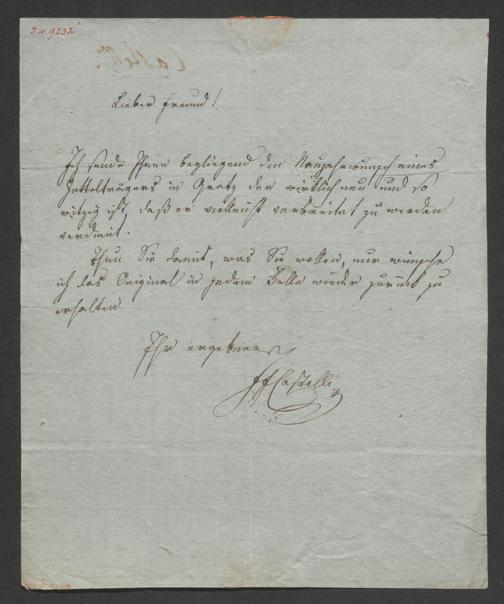 I.N. 9232
Lieber Freund!
Ich sende Ihnen beyliegend den Neujahrwunsch eines
Zettelträgers in Gratz der wirklich neu und so
witzig ist, daß er vielleicht verbreitet zu werden
verdient.
Thun Sie damit, was Sie wollen, nur wünsche
ich das Original in jedem Falle wieder zurück zu
erhalten
Ihr ergebener
JFCastelli